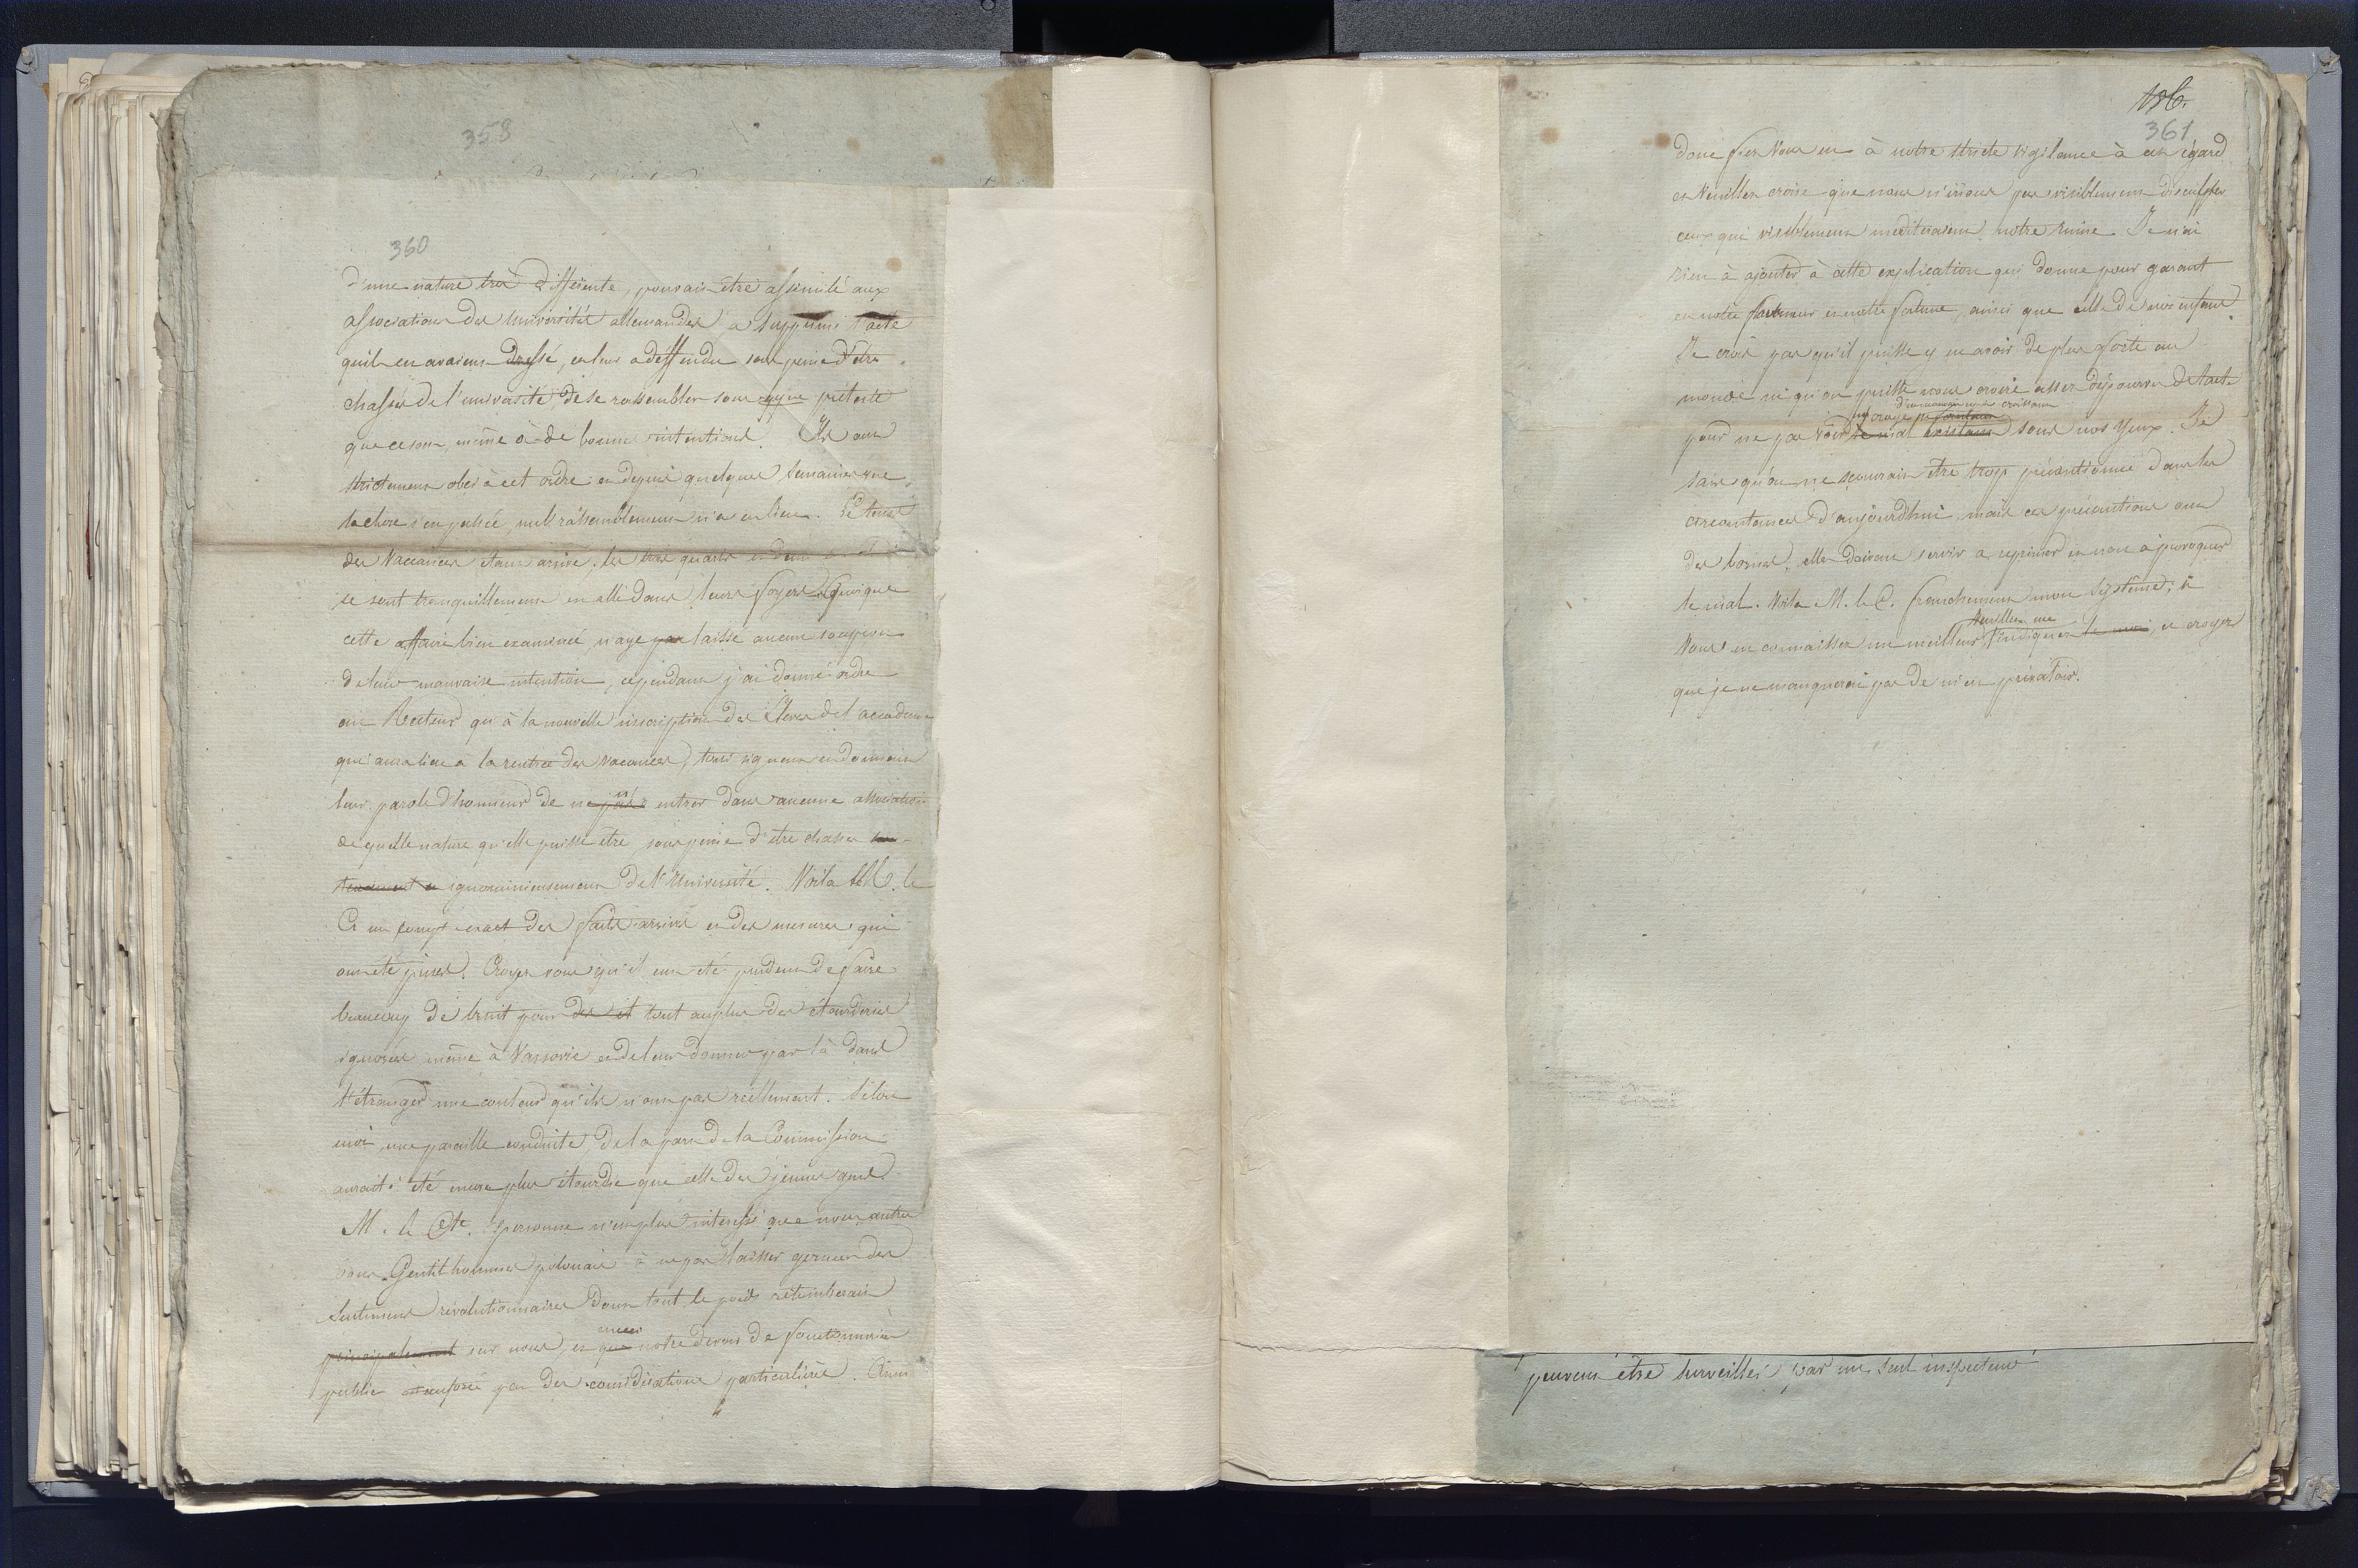 358
360
d'une nature très differente, pouvait être assimilé aux
associations des Universités allemandes a supprimé l'acte
quils en avaient dressé, et leur a deffendu sous peine d'être
chassés de l'université, de se rassembler sous pretexte
que ce soit, même à de bonnes intentions. Ils ont
strictement obei à cet ordre et depuis quelques semaines que
la chose s'en passée, nul rassemblement n'a eu lieu. Le tems
des Vaccances étant arrivé, les trois quarts
se sont tranquillement en allé dans leurs foyers. Quoique
cette affaire bien examinée, n'aye pas laissé aucun soupçon
de leur mauvaise intention, cependant j'ai donné ordre
au Recteur qu'à la nouvelle inscription des Eleves de l'accademie
qui aura lieu à la rentrée des vacances, tous signent et donnent
leur parole d'honneur de n'entrer dans aucune association
de quelle nature qu'elle puisse être, sous peine d'etre chassés
ignominieusement de l'Université. Voila M. le
C. un compt exact des faits arrivés et des mesures qui
ont été prises. Croyez vous qu'il eut été prudent de faire
beaucoup de bruit pour tout au plus des étourderies
ignorées même à Varsovie et de leur donner par là dans
l'étranger une couleur qu'ils n'ont pas réellement. Selon
moi, une pareille conduite, de la part de la Commission
aurait été encore plus étourdie que celle des jeunes gens.
M. le Cte. personne n'est plus interessé que nous autres
Gentilhommes polonais à ne pas laisser germer des
sentimens révolutionnaires dont tout le poids retomberait
principalement sur nous, et notre devoir de fonctionnaire
public est renforcé par des considérations particulières. Ainsi
186.
361
donc fiez Vous en à notre stricte vigilance à cet égard
et Veuillez croire que nous n'irions pas visiblement disculper
ceux qui visiblement mediteraient notre ruine. Je n'ai
rien à ajouter à cette explication qui donne pour garant
et notre honneur et notre fortune, ainsi que celle de nos enfans.
Je crois pas qu'il puisse y en avoir de plus forte au
monde ni qu'on puisse nous croire assez dépourvu de tact
un orage
pour ne pas voir le mal existant sous nos yeux. Je
sais qu'on ne sçaurait être trop précautionné dans les
circonstances d'aujourdhui, mais ces précautions ont
des bornes, elles doivent servir a reprimer et non à provoquer
le mal. Voila M. le C. franchement mon système; si
Veuillez me
Vous en connaissez un meilleur, l'indiquer le moi, et croyez
que je ne manquerai pas de m'en prévaloir.
peuvent être surveillés par un seul inspecteur